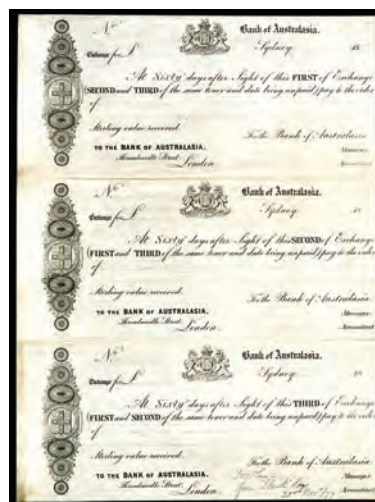 No.
Bank of Australasia.
Exchange for £
Sydney 18
At Sixty days after Sight of this FIRST of Exchange
(SECOND and THIRD of the same tenor and date being unpaid) pay to the order
of
Sterling value received.
For the Bank of Australasia
TO THE BANK OF AUSTRALASIA,
Manager.
Threadneedle Street,
Accountant
London.
No.
Bank of Australasia.
Exchange for £
Sydney 18
At Sixty days after Sight of this SECOND of Exchange
(FIRST and THIRD of the same tenor and date being unpaid) pay to the order
of
Sterling value received.
For the Bank of Australasia
TO THE BANK OF AUSTRALASIA,
Manager.
Threadneedle Street,
Accountant
London.
No.
Bank of Australasia.
Exchange for £
Sydney 18
At Sixty days after Sight of this THIRD of Exchange
(FIRST and SECOND of the same tenor and date being unpaid) pay to the order
of
Sterling value received.
For the Bank of Australasia
TO THE BANK OF AUSTRALASIA,
Manager.
Threadneedle Street,
Accountant
London.